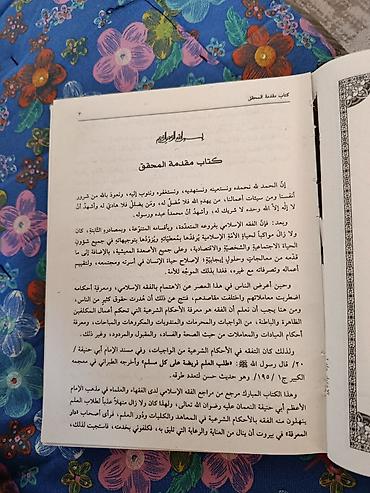 كتاب مقدمة المحقق
٣
كتاب مقدمة المحقق
إنَّ الحمد لله نحمده ونستعينه ونستهديه، ونستغفره ونتوب إليه، ونعوذ بالله من شرور
أنفسنا ومن سيئات أعمالنا، من يهدهِ الله فلا مُضلَّ له، ومَن يضلل فلا هاديَ له وأشهدُ أنْ
لا إله إلاّ الله وحده لا شريك له، وأشهدُ أنَّ محمداً عبده ورسوله.
وبعد: فإنَّ الفقه الإسلامي بفروعه المتعدِّدة، وبأقسامه المتنوّعة، وبمصادره الثابتة، كان
ولا زالَ مواكباً لحياةِ الأمّةِ الإسلاميةِ يُرفدُها بمُعطياتِهِ ويُزوِّدُها بتوجيهاته في جميع شؤون
الحياة الاجتماعية والشخصيّة والاقتصادية، وعلى جميع الأصعدة المعيشية، بالإضافة إلى ما
قدمه من معالجاتٍ وحلولٍ إيجابيّةٍ لإصلاح حياة الإنسان في أسرته ومجتمعه، ولتقييم
أعماله وتصرفاته مع غيره، فغدا بذلك الموجّه للأمة
وحين أعرض الناس في هذا العصر عن الاهتمام بالفقه الإسلامي، ومعرفة أحكامه
اضطربت معاملاتهم واختلفت مقاصدهم، فنتج عن ذلك أن هُدرت حقوق كثير من الناس،
ومن هنا يجب أن نعلم أن الفقه هو معرفة الأحكام الشرعية التي تحكم أعمال المكلفين
الظاهرة والباطنة، من الواجبات والمحرمات والمندوبات والمكروهات والمباحات، ومعرفة
أحكام العبادات والمعاملات من حيث الصحة والفساد، والقبول والمردود، وغير ذلك.
ولذلك كان التفقه في الأحكام الشرعية من الواجبات، وفي مسند الإمام أبي حنيفة /
٢٠/ قال رسول الله ﷺ: «طلب العلم فريضة على كل مسلم» وأخرجه الطبراني في معجمه
الكبير ج١٠/١٩٥/ وهو حديث حسن لتعدد طرقه.
وهذا الكتاب المبارك مرجع من مراجع الفقه الإسلامي لدى الفقهاء والعلماء في مذهب الإمام
الأعظم أبي حنيفة النعمان عليه رضوان الله تعالى، ولهذا كان ولا زال منهلاً عذباً لطلاب العلم
ينهلون منه الفقه بالأحكام الشرعية في المعاملات والكليات ودور العلم، فرأى أصحاب «دار
المعرفة» في بيروت أن ينال من العناية والرعاية التي تليق به، فكلفوني بخدمته، فاستجبت لذلك،